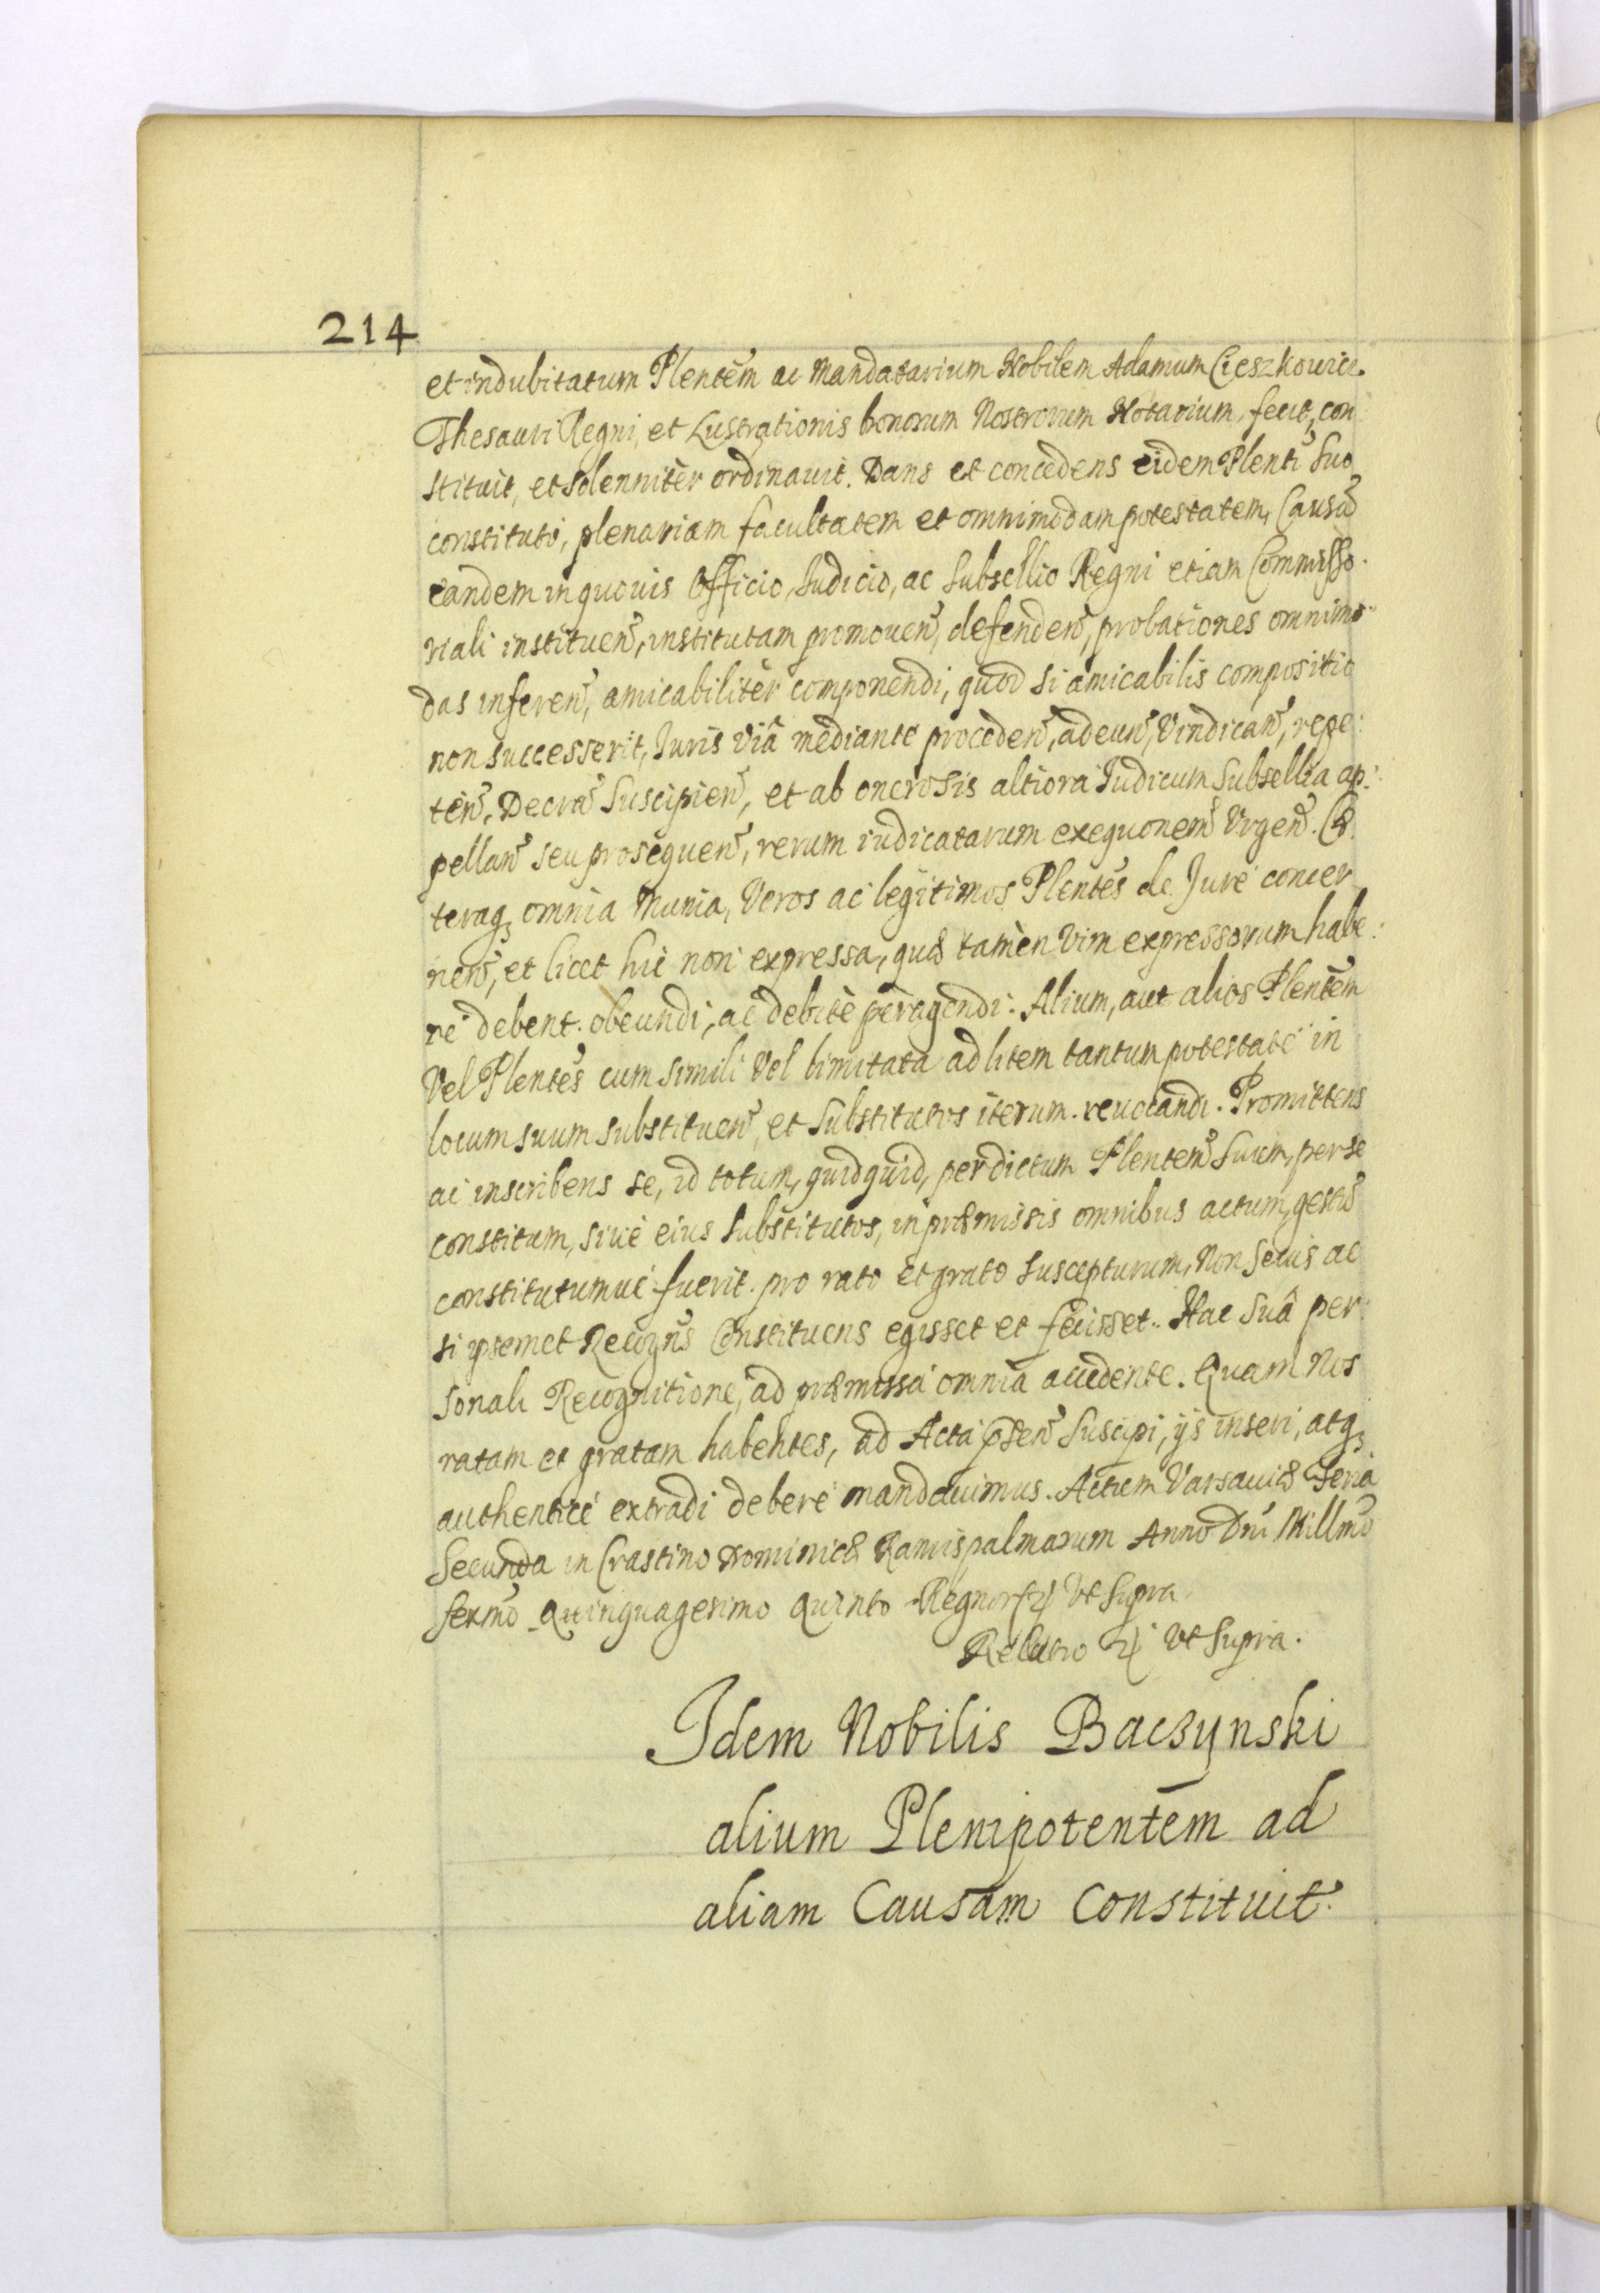 214
et indubitatum Plentem ac Mandatarium Nobilem Adamum Cieszkowicz
Thesauri Regni, et Lustrationis bonorum Nostrorum Notarium, fecit, con
stituit, et solenniter ordinavit. Dans et concedens eidem Plenti suo
constituto, plenariam facultatem et omnimodam potestatem, Causã
eandem in quovis Officio, Iudicio, ac Subsellio Regni etiam Commisso-
riali instituen, institutam promoven, defenden, probationes omnimo-
das inferen, amicabilitèr componendi, quod si amicabilis compositio
non successerit, Iuris viâ mediante proceden, adeun, Vindican, repe:
ten, Decra Suscipien, et ab onerosis altiora Iudicum Subsellia ap:
pellan seu prosequen, rerum iudicatarum exequonem Urgen. Cæ
teraq omnia Munia, Veros ac legitimos Plentes de Jure concer
nen, et licet hic non expressa, quæ tamèn Vim expressorum habe:
re debent. obeundi, ac debitè peragendi. Alium, aut alios Plentem
Vel Plentes cum simili Vel limitata ad litem tantum potestate in
locum suum substituen, et Substitutos iterum revocandi. Promittens
ac inscribens se, id totum, quidquid, per dictum Plentem Suum, per se
constitum, sive eius Substitutos, in præmissis omnibus actum, gestũ
constitutumve fuerit. pro rato et grato suscepturum, Non secus ac
si ipsemet Recogns Constituens egisset et fecisset. Hac Suâ per:
sonali Recognitione, ad præmissa omnia accedente. Quam Nos
ratam et gratam habentes, ad Acta psen Suscipi, ijs inseri, atq
authenticè extradi debere mandavimus. Actum Varsaviæ Feria
Secunda in Crastino Dominicæ Ramispalmarum Anno Dni Millmo
sexmo Quinquagesimo Quinto Regnor Ut Supra
Relatio Ut Supra.
Idem Nobilis Baczynski
alium Plenipotentem ad
aliam Causam Constituit.